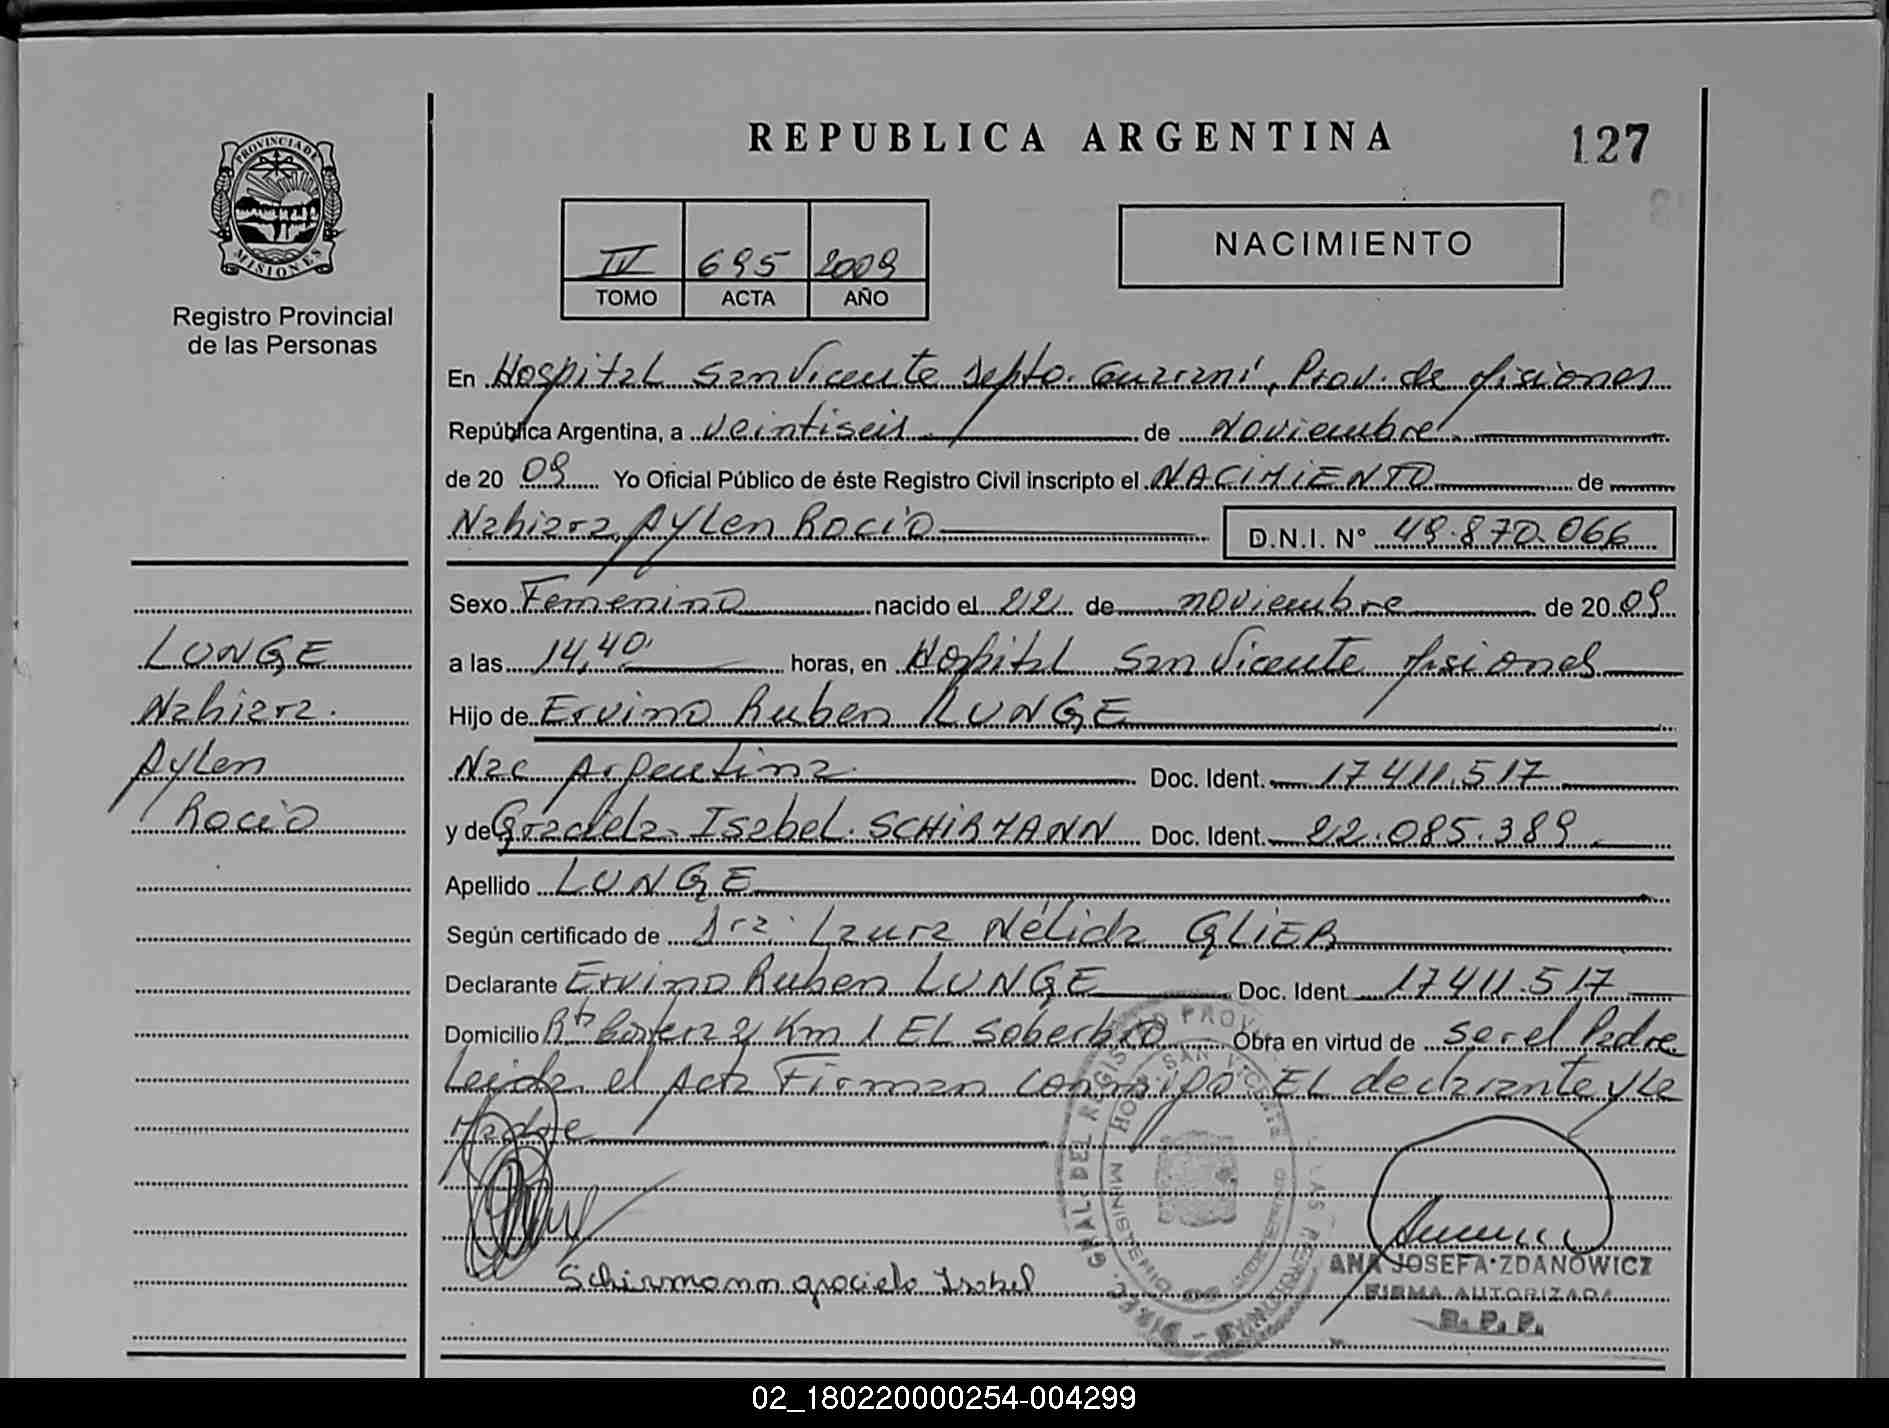 REPUBLICA ARGENTINA
127
PROVINCIA DE
MISIONES
Registro Provincial
de las Personas
IV 695 2009
TOMO ACTA AÑO
NACIMIENTO
En Hospital San Vicente Depto. Guaraní, Prov. de Misiones
República Argentina, a veintiseis de Noviembre
de 20 09 Yo Oficial Público de éste Registro Civil inscripto el NACIMIENTO de
Nahiara Aylen Rocio D.N.I. Nº 49.870.066
Sexo Femenino nacido el 22 de noviembre de 20 09
a las 14,40 horas, en Hospital San Vicente Misiones
Hijo de Ervino Ruben LUNGE
Nac Argentina Doc. Ident. 17.411.517
y de Graciela Isabel SCHIRMANN Doc. Ident. 22.085.389
Apellido LUNGE
Según certificado de Dra. Laura Nélida GLIER
Declarante Ervino Ruben LUNGE Doc. Ident 17.411.517
Domicilio Km 1 EL Soberbio Obra en virtud de ser el Padre
Leida el Acta Firman conmigo EL declarante y La
Madre
LUNGE
Nahiara
Aylen
Rocio
Schirmann graciela Isabel
ANA JOSEFA ZDANOWICZ
FIRMA AUTORIZADA
R. P. P.
HOSP. SAN VICENTE
MINISTERIO DE GOBIERNO
02_180220000254-004299